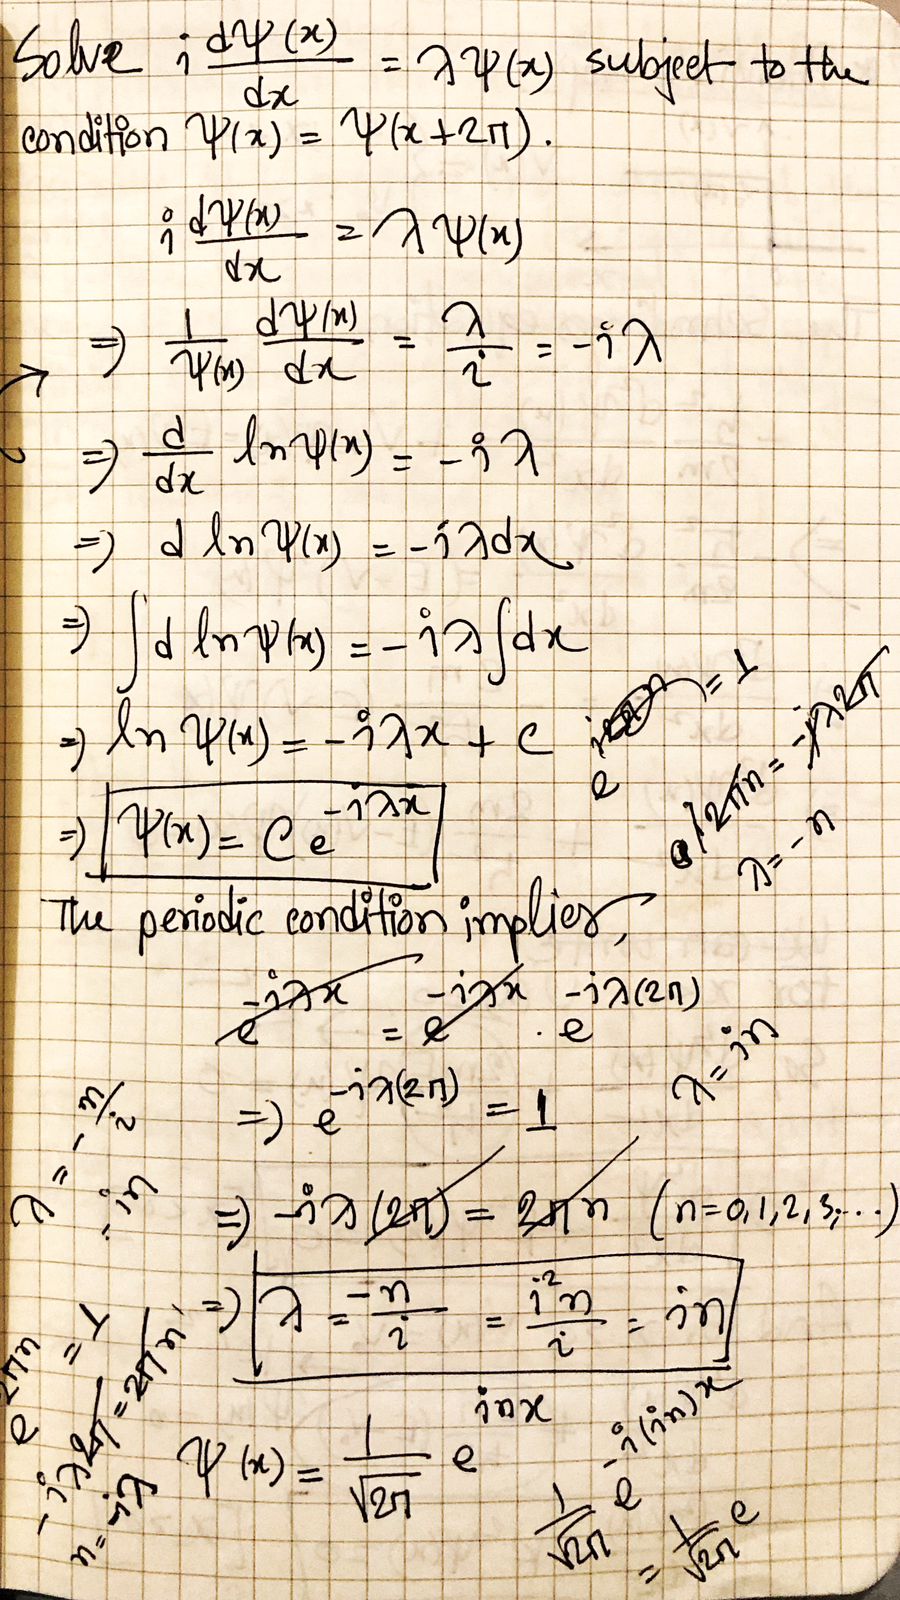 Solve i dψ(x)/dx = λψ(x) subject to the
condition ψ(x) = ψ(x+2π).
i dψ(x)/dx = λψ(x)
=> 1/ψ(x) dψ(x)/dx = λ/i = -iλ
=> d/dx ln ψ(x) = -iλ
=> d ln ψ(x) = -iλdx
=> ∫d ln ψ(x) = -iλ∫dx
=> ln ψ(x) = -iλx + c
=> ψ(x) = Ce^{-iλx}
= 1
i2πn = -iλ2π
λ = -n
The periodic condition implies,
e^{-iλx} = e^{-iλx} . e^{-iλ(2π)}
λ = in
=> e^{-iλ(2π)} = 1
λ = -n/i
in
=> -iλ(2π) = 2πn (n=0,1,2,3,...)
=> λ = -n/i = i²n/i = in
e^{2πn} = 1
-iλ2π = 2πn
n = -iλ
ψ(x) = 1/√2π e^{inx}
1/√2π e^{-i(in)x}
= 1/√2π e